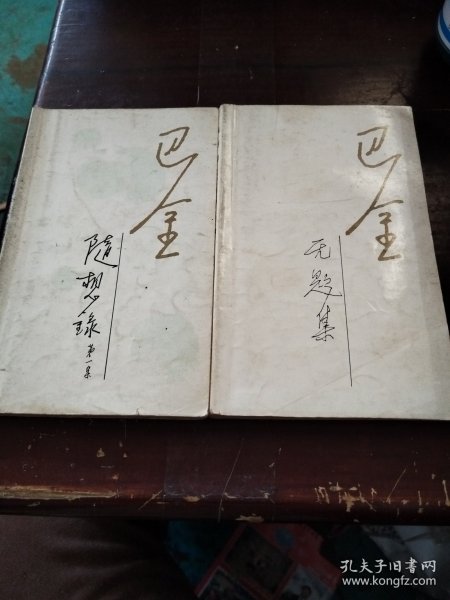 巴金
隨想錄 第一集
巴金
无题集
孔夫子旧书网
www.kongfz.com